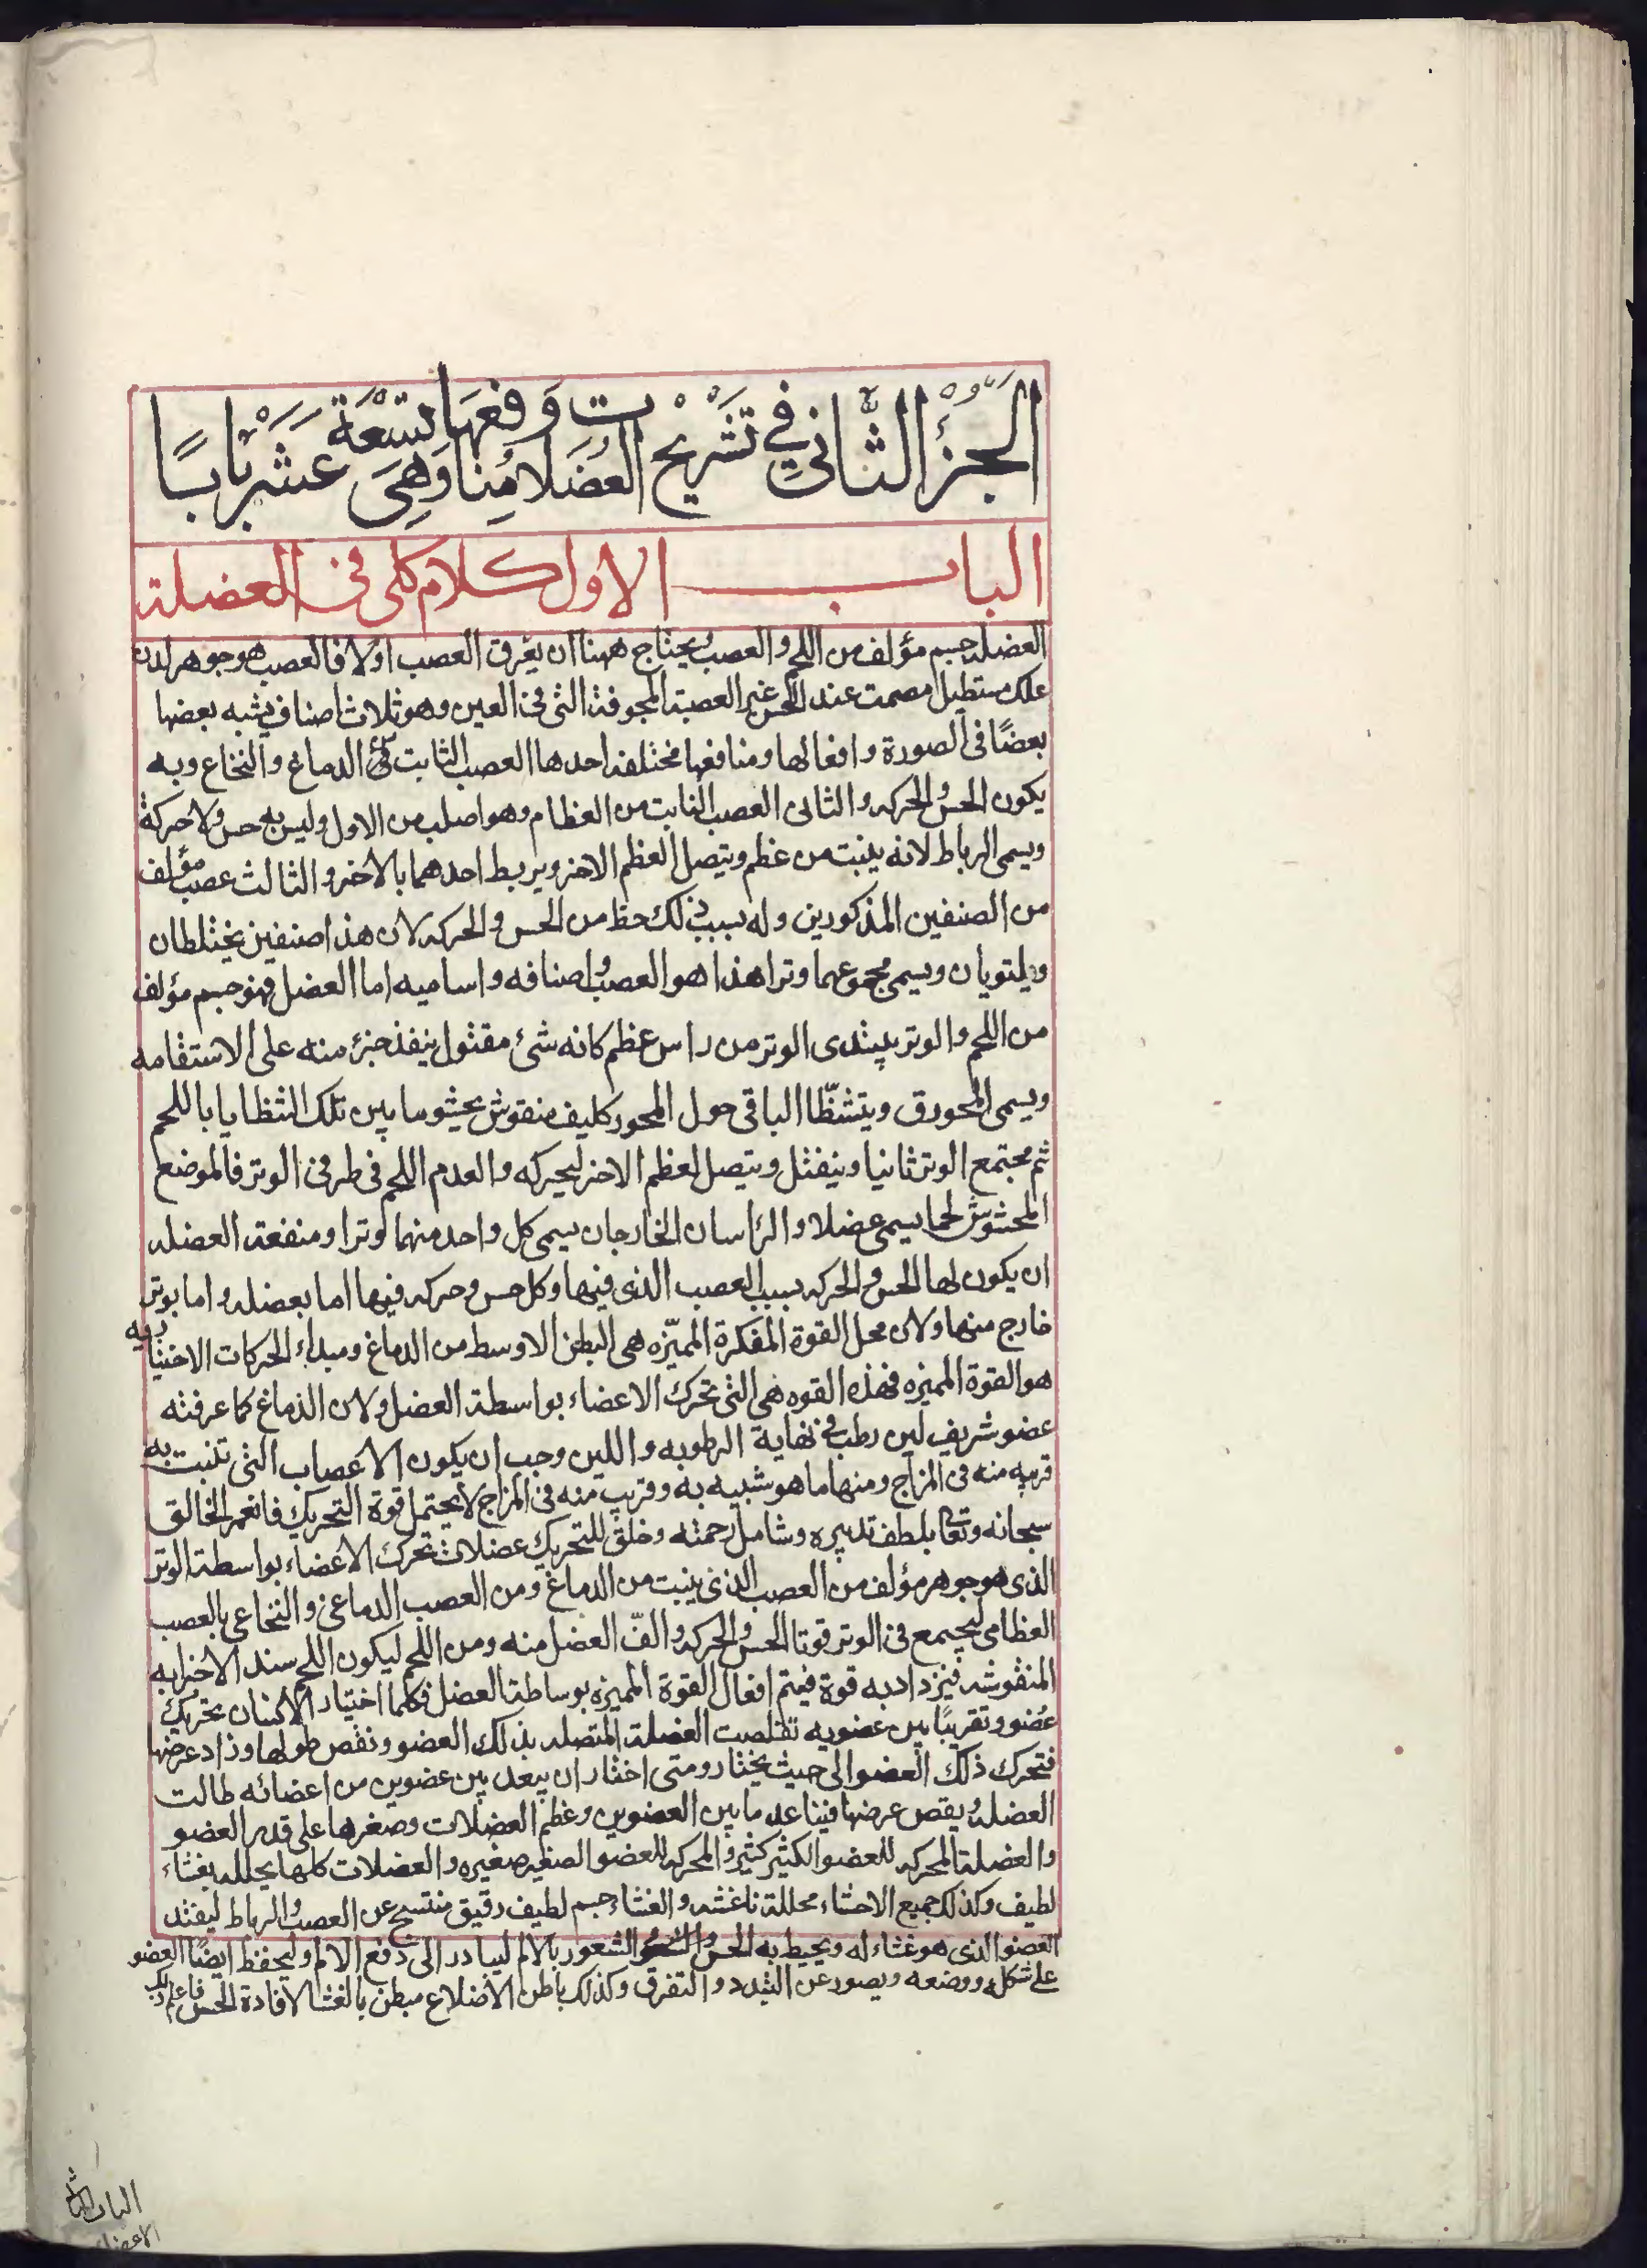 الجزء الثاني في تشريح العضلات ومنافعها وهي تسعة عشر بابًا
الباب الاول كلام كلى فى العضلة
العضله جسم مؤلف من اللحم والعصب ويحتاج ههنا ان يعرف العصب اولا فالعصب هو جوهر لدن
علك مستطيل مصمت عند الحس غير العصبة المجوفة التى فى العين وهو ثلاث اصناف يشبه بعضها
بعضًا فى الصورة وافعالها ومنافعها مختلفه احدها العصب النابت من الدماغ والنخاع وبه
يكون الحس والحركه والثانى العصب النابت من العظام وهو اصلب من الاول وليس له حس ولا حركة
ويسمى الرباط لانه ينبت من عظم ويتصل العظم الاخر ويربط احدهما بالاخر والثالث عصب مؤلف
من الصنفين المذكورين وله بسبب ذلك حظ من الحس والحركه لان هذا صنفين يختلطان
ويلتويان ويسمى مجموعهما وترا هذا هو العصب واصنافه واساميه اما العضل فهو جسم مؤلف
من اللحم والوتر يبتدى الوتر من راس عظم كانه شئ مفتول ينفذ جزء منه على الاستقامه
ويسمى المحور ويتشظّا الباقى حول المحور كليف منقوش يحشو ما بين تلك الشظايا با اللحم
ثم مجتمع الوتر ثانيا وينفتل ويتصل لعظم الاخر ليحركه والعدم اللحم فى طرفى الوتر فالموضع
المحشو لحما يسمى عضلا والراسان الخارجان يسمى كل واحد منهما وترا ومنفعة العضله
ان يكون لها الحس والحركه بسبب العصب الذى فيها وكل حس وحركه فيها اما بعضله واما بوتر
خارج منها ولان محل القوة المفكرة المميّزه هى البطن الاوسط من الدماغ ومبداء الحركات الاختياريه
هو القوة المميزه فهذه القوه هى التى تحرك الاعضاء بواسطة العضل ولان الدماغ كما عرفته
عضو شريف لين رطب فى نهاية الرطوبه واللين وجب ان يكون الاعصاب التى تنبت به
قريبه منه فى المزاج ومنها ما هو شبيه به وقريب منه فى المزاج لا يحتمل قوة التحريك فانعم الخالق
سبحانه وتعالى بلطف تدبيره وشامل رحمته وخلق للتحريك عضلات تحرك الاعضاء بواسطة الوتر
الذى هو جوهر مؤلف من العصب الذى ينبت من الدماغ ومن العصب الدماغى والنخاعى بالعصب
العظامى ليجتمع فى الوتر قوتا الحس والحركه والفّ العضل منه ومن اللحم ليكون اللحم سند الاجزابه
المنقوشه فيزداد به قوة فيتم افعال القوة المميزه بوساطة العضل فكلما اختيار الانسان بحريك
عضو وتقريبًا بين عضويه تقلصت العضلة المتصله بذلك العضو ونقص طولها وزاد عرضها
فتحرك ذلك العضو الى حيث يختار ومتى اختار ان يبعد بين عضوين من اعضائه طالت
العضله ويقص عرضها فيتباعد ما بين العضوين وعظم العضلات وصغرها على قدر العضو
والعضلة المحركه للعضو الكثير كثير والمحركه للعضو الصغير صغيره والعضلات كلها يحلله بغشاء
لطيف وكذلك جميع الاحشاء محللة ناغشه والغشاء جسم لطيف رقيق منتسج عن العصب والرباط ليفتد
العضو الذى هو غشاء له ويحيط به الحس والشعور بالالم ليبادر الى دفع الالم وليحفظ ايضًا العضو
على شكله ووضعه ويصور عن التبدد والتفرق وكذلك باطن الاضلاع مبطن بالغشا لافادة الحس فاعلم ذلك
الباب الثانى